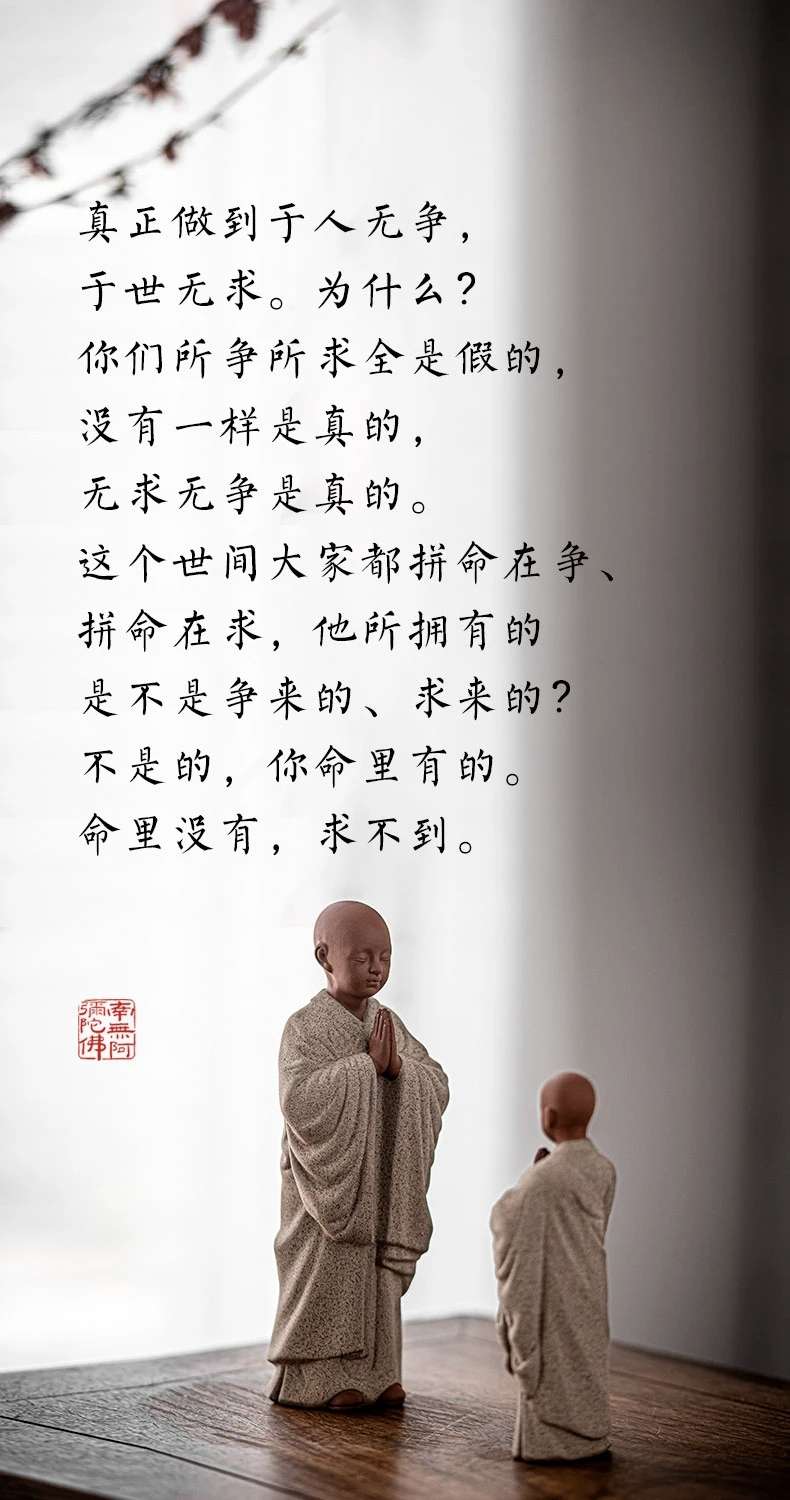 真正做到于人无争，
于世无求。为什么？
你们所争所求全是假的，
没有一样是真的，
无求无争是真的。
这个世间大家都拼命在争、
拼命在求，他所拥有的
是不是争来的、求来的？
不是的，你命里有的。
命里没有，求不到。
南無阿彌陀佛